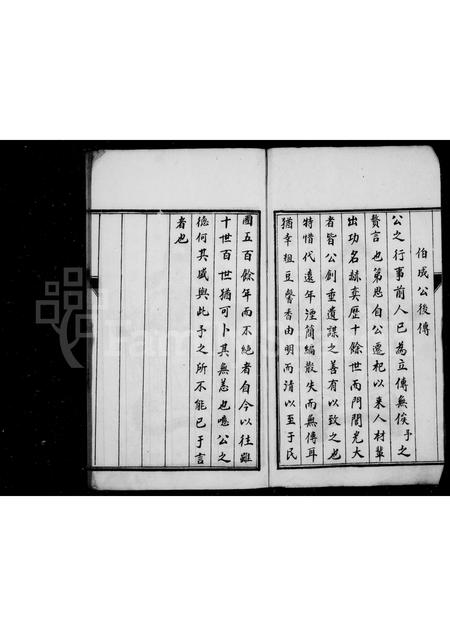 伯成公後傳
公之行事前人已為立傳無俟予之
贅言也第思自公遷杞以來人材輩
出功名赫奕歷十餘世而門閭光大
者皆公創垂遺謀之善有以致之也
特惜代遠年湮簡編散失而無傳耳
猶幸俎豆馨香由明而清以至于民
國五百餘年而不絕者自今以往雖
十世百世猶可卜其無恙也噫公之
德何其盛與此予之所不能已于言
者也